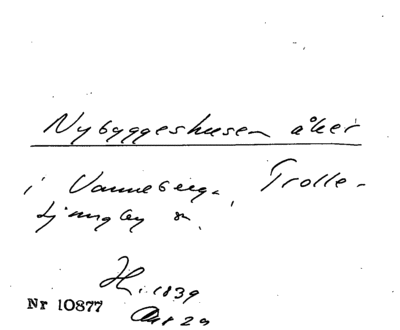 Nybyggeshusen åker
i Vanneberga, Trolle-
ljungby sn.
Hi. 1839
Nr 10877